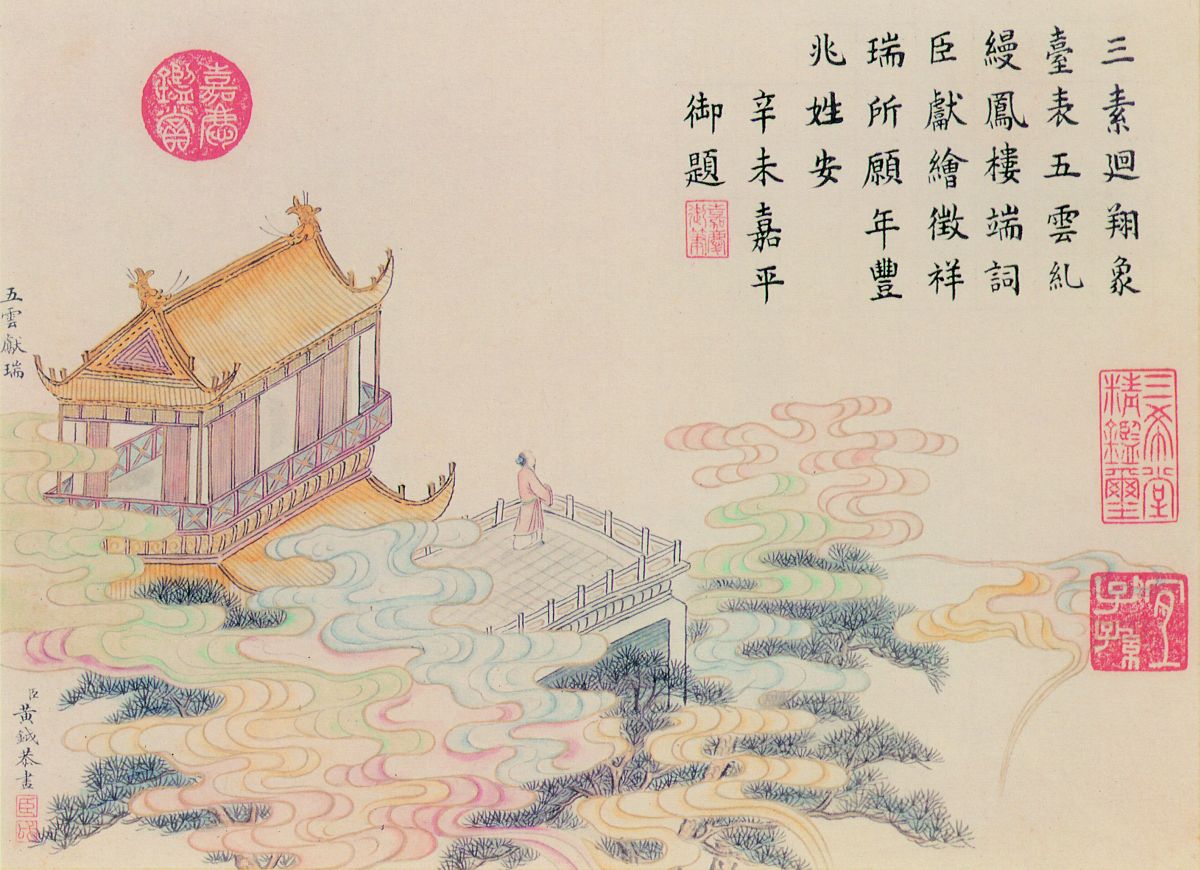 三素迴翔象
臺表五雲糺
縵鳳樓端詞
臣獻繪徵祥
瑞所願年豐
兆姓安
辛未嘉平
御題
嘉慶
御筆
嘉慶
鑑賞
三希堂
精鑑璽
宜
子孫
五雲獻瑞
臣黃鉞恭畫